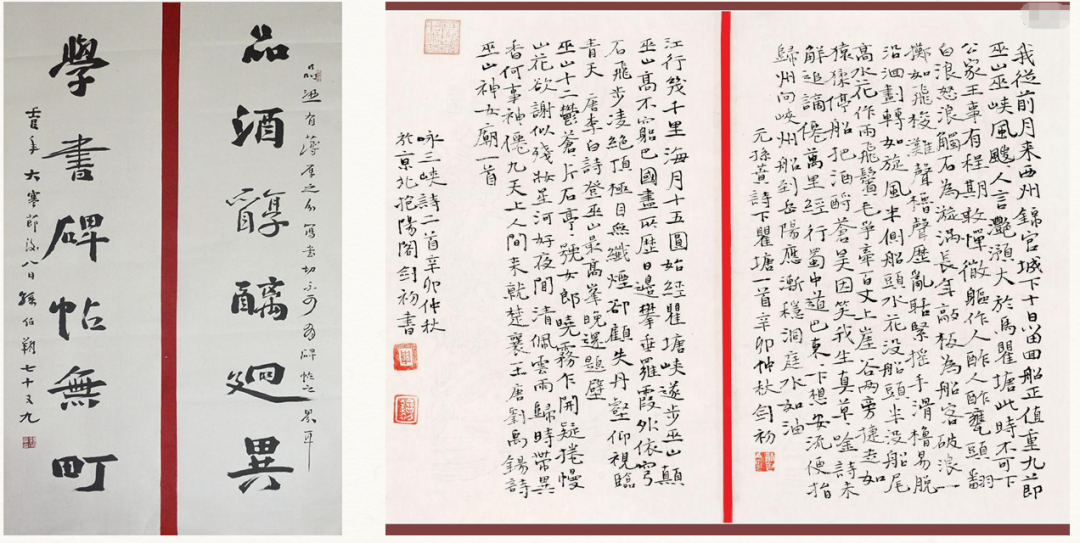 品酒醇醨迴異
學書碑帖無町
壬寅年大寒節後八日孫伯翔七十又九
我從前月来西州錦宮城下十日留回船正值重九節
巫山巫峽風颼颼人言灩澦大於馬瞿塘此時不可下
公家王事有程期敢憚微軀作人鮓人鮓甕頭翻
白浪怒浪觸石為漩渦長年敲板為船客破浪一
擲如飛梭灘聲櫓聲歷亂聒緊搖手滑櫓易脱
沿洄劃轉如旋風半側船頭水花没船頭半没船尾
高水花作雨飛鬢毛牽百丈上崖谷两旁捷走如
猿猱停船把酒酹蒼昊因笑我生真草唫詩未
解追謫僊萬里經行蜀中道巴東下想安流便指
歸州向峽州船到岳陽應漸穩洞庭水如油
元孫蕡詩下瞿塘一首辛卯仲秋剑初
江行幾千里海月十五圓始經瞿塘峽遂步巫山巔
巫山高不窮巴國盡所歷日邊攀垂羅霞外依穹
石飛步凌絕頂極目無纖煙却顧失丹壑仰視臨
青天 唐李白詩登巫山最高峯晚還題壁
巫山十二鬱蒼蒼片石亭亭號女郎曉霧乍開疑捲幔
山花欲謝似殘妝星河好夜聞清佩雲雨歸時帶異
香何事神僊九天上人間来就楚襄王唐劉禹錫詩
巫山神女廟一首
咏三峽詩二首辛卯仲秋
於京北抱陽閣剑初書